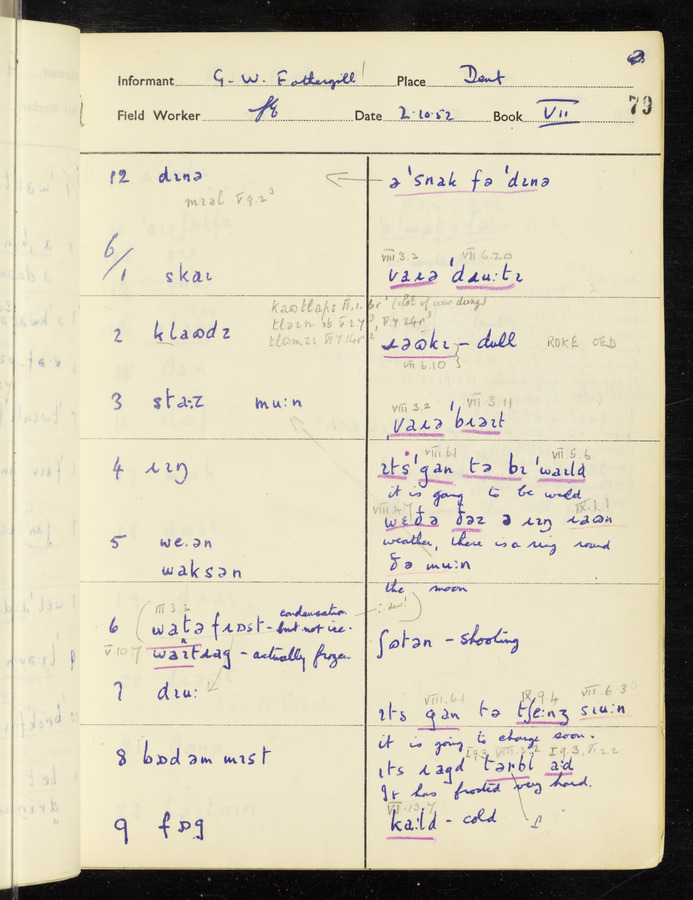 Informant G. W. Fothergill Place Dent
79
Field Worker Date 2.10.52 Book VII
12 dɪnə
ə 'snak fə 'dɪnə
mɪəl V 9.2³
6/1 skaɪ
VIII 3.2 VII 6.20
vaɹə 'dɹu:tɪ
2 klaʊdz
ɹəʊkɪ - dull ROKE OED
VII 6.10
3 sta:z mu:n
VIII 3.2 VII 3.11
vaɹə 'bɹaɪt
4 ɹɪŋ
VIII 6.1 VII 5.6
ɪts 'gan tə bɪ 'waɪld
it is going to be wild
IX.1.1
wɛðə ðəz ə ɹɪŋ ɹaʊn
weather, there is a ring round
5 we.ən
ðə mu:n
waksən
the moon
III 3.2
6 watə fɹɒst - condensation but not ice.
V 10 7 waɪt ɹag - actually frozen
ʃɒtən - shooting
7 dɪu:
VIII.6.1 IX 9.4 VII 6 3
ɪts gan tə tʃe:nʒ sɪu:n
it is going to change soon.
8 bɒdəm mɪst
I 9.3 VIII.3.2 I 9.3, V 2.2
ɪts ɹagd tərbl a:d
It has frosted very hard.
VI.13.7
9 fɒg
ka:ld - cold